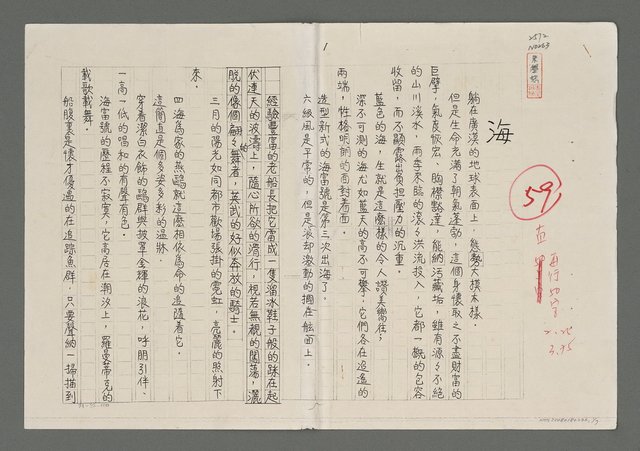 海
躺在廣漠的地球表面上，態勢大模大樣。
但是生命充滿了朝氣蓬勃，這個身懷取之不盡財富的
巨擘，氣度恢宏，胸襟豁達，能納污藏垢，雖有源々不絕
的山川溪水，雨季來臨的滾々洪流投入，它都一概的包容
收留，而不顯露出負担壓力的沉重。
藍色的海，生就是這麼樣的令人讚美嚮往；
深不可測的海尤如藍天的高不可攀，它們各在遙遠的
兩端，性格明朗的面對着面。
造型新式的海富號是第三次出海了。
六級風是平常的，但是浪却激動的擱在舷面上。
經驗豐富的老船長把它當成一隻溜冰鞋子般的踩在起
伏連天的波濤上，隨心所欲的滑行，視若無覩的闖蕩，灑
脫的像個翩々舞者，英武的好似奔放的騎士。
三月的陽光如同都市歡場張掛的霓虹，亮麗的照射下
來。
四海爲家的燕鷗就這麼相依爲命的追隨着它。
這簡直是個多姿多彩的溫牀。
穿着潔白衣飾的鷗群與披罩金輝的浪花，呼朋引伴、
一高一低的唱和的有聲有色。
海富號的歷程不寂寞，它高居在潮汐上，羅曼蒂克的
載歌載舞。
船腹裏是懷才優遇的在追踪魚群，只要聲納一掃描到
1
2572
N0263
59
直